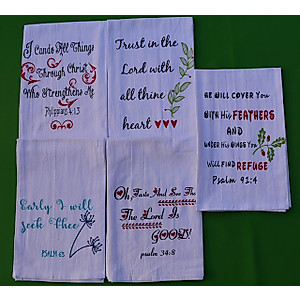 I Can do All Things
Through Christ
Who Strengthens Me
Philippians 4:13
Trust in the
Lord with
all thine
heart
HE WILL COVER You
WITH His FEATHERS
AND
UNDER HIS WINGS You
WILL FIND REFUGE
Psalm 91:4
Early I will
seek Thee
PSALM 63
Oh Taste And See That
The Lord Is
GOOD!
psalm 34:8